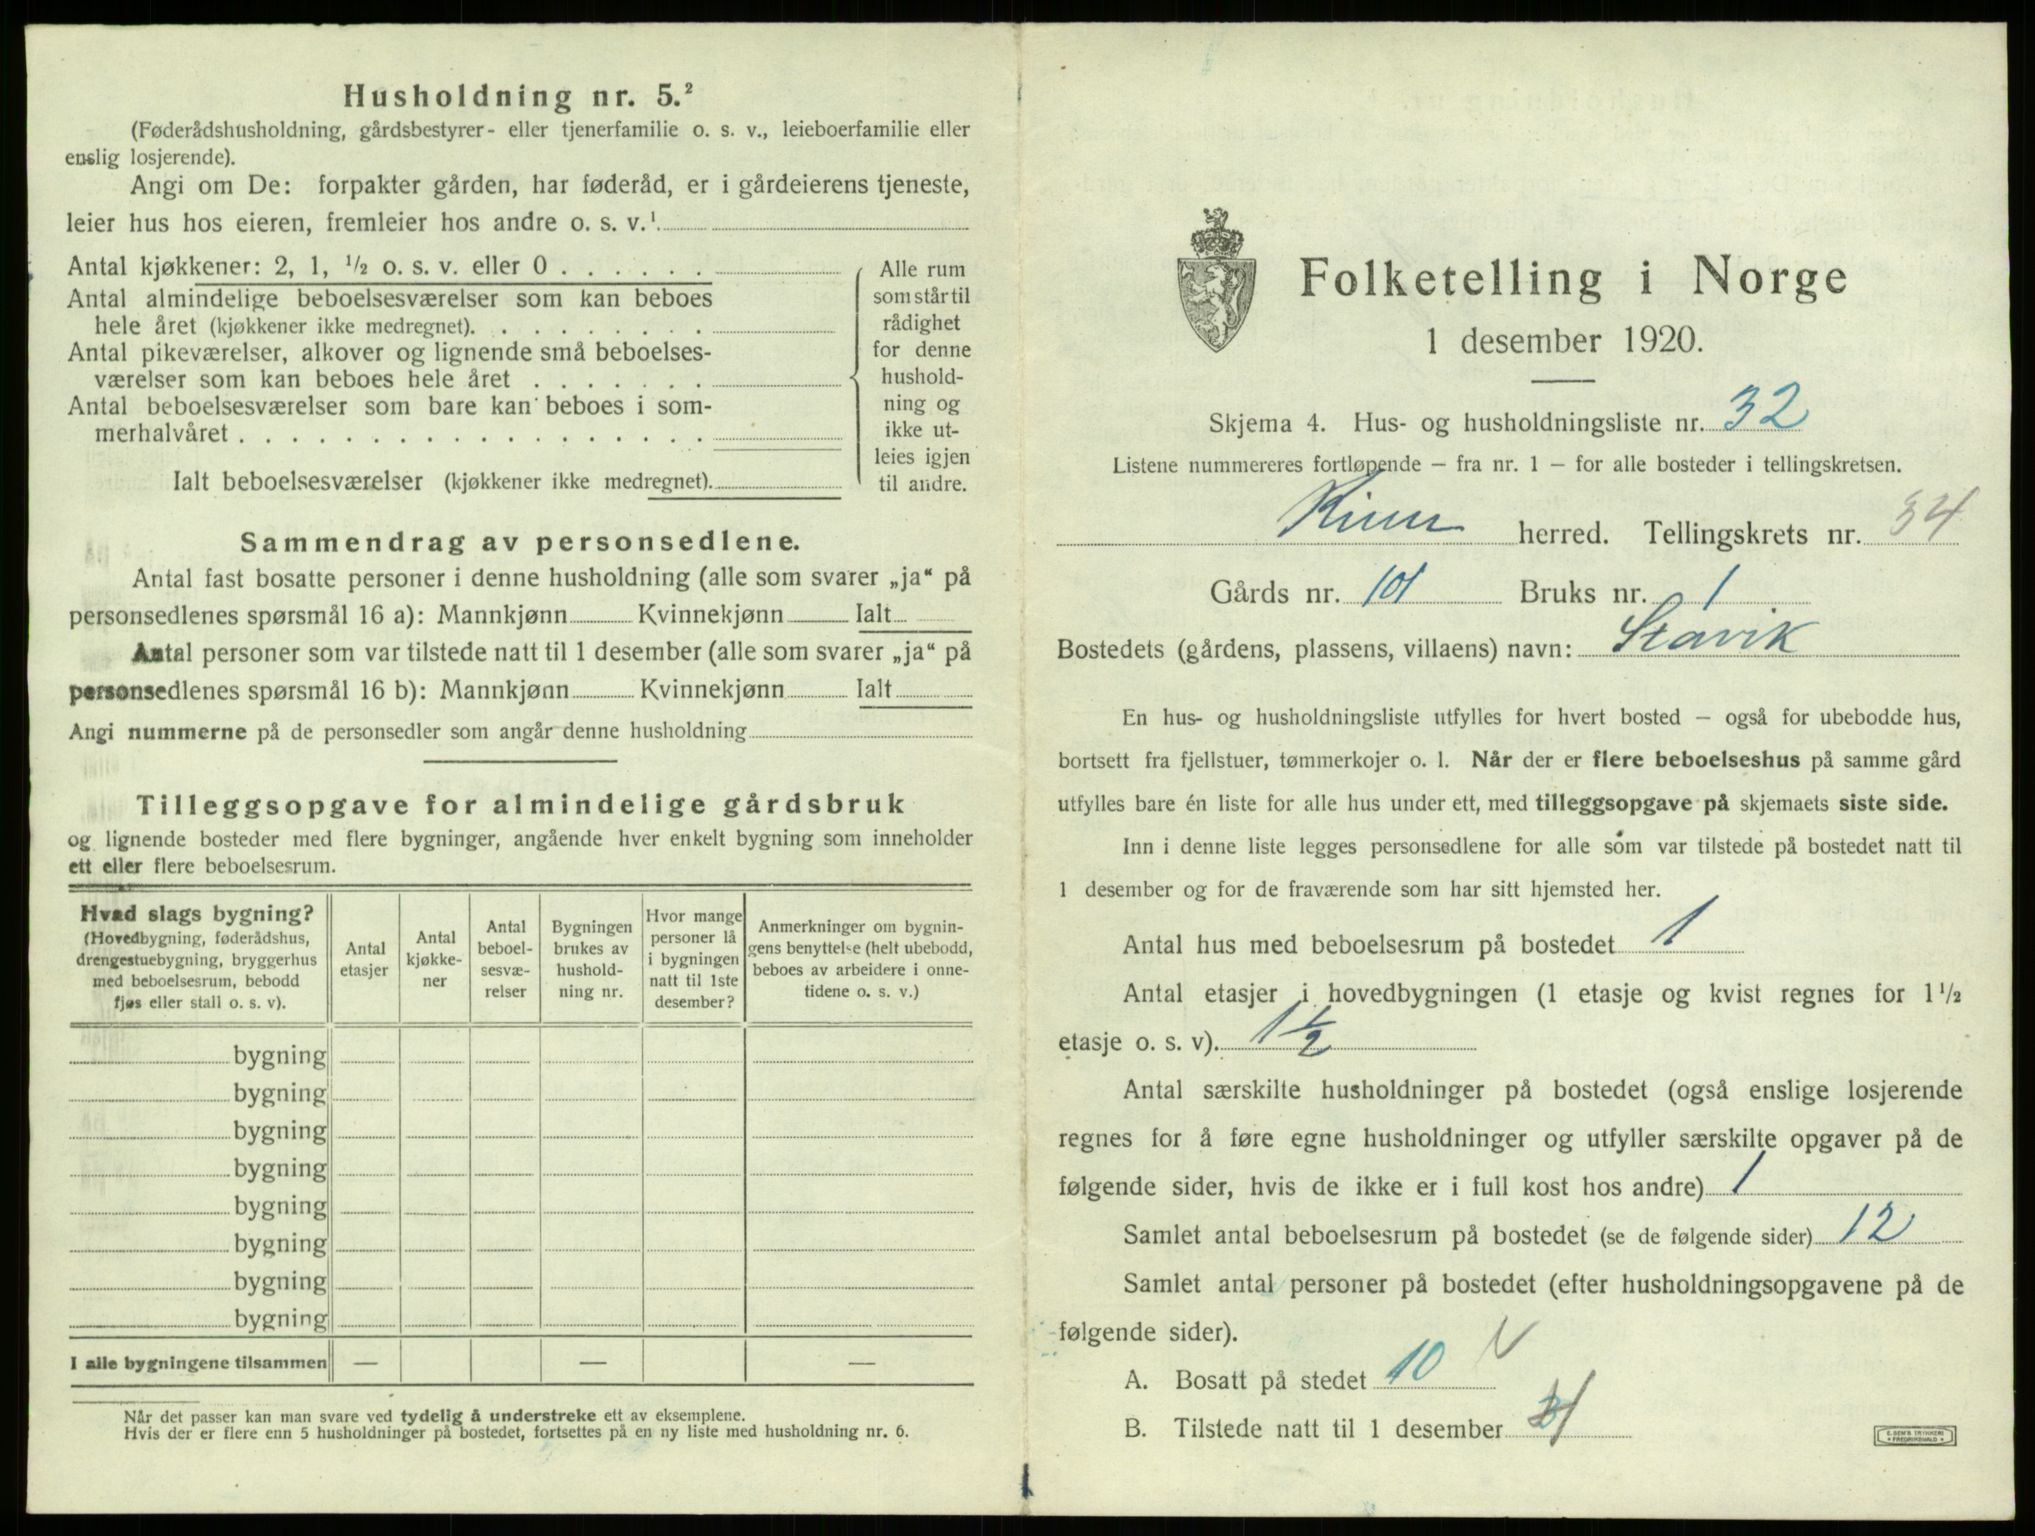 Husholdning nr. 5.²
(Føderådshusholdning, gårdsbestyrer- eller tjenerfamilie o. s. v., leieboerfamilie eller
enslig losjerende).
Angi om De: forpakter gården, har føderåd, er i gårdeierens tjeneste,
leier hus hos eieren, fremleier hos andre o. s. v.¹
Antal kjøkkener: 2, 1, ½ o. s. v. eller 0 . . . . . .
Antal almindelige beboelsesværelser som kan beboes
hele året (kjøkkener ikke medregnet). . . . . . . . .
Antal pikeværelser, alkover og lignende små beboelses-
værelser som kan beboes hele året . . . . . . .
Antal beboelsesværelser som bare kan beboes i som-
merhalvåret . . . . . . . . . . . . . . . . . .
Ialt beboelsesværelser (kjøkkener ikke medregnet).
Alle rum
som står til
rådighet
for denne
hushold-
ning og
ikke ut-
leies igjen
til andre.
Sammendrag av personsedlene.
Antal fast bosatte personer i denne husholdning (alle som svarer „ja“ på
personsedlenes spørsmål 16 a): Mannkjønn Kvinnekjønn Ialt
Antal personer som var tilstede natt til 1 desember (alle som svarer „ja“ på
personsedlenes spørsmål 16 b): Mannkjønn Kvinnekjønn Ialt
Angi nummerne på de personsedler som angår denne husholdning
Tilleggsopgave for almindelige gårdsbruk
og lignende bosteder med flere bygninger, angående hver enkelt bygning som inneholder
ett eller flere beboelsesrum.
Hvad slags bygning?
(Hovedbygning, føderådshus,
drengestuebygning, bryggerhus
med beboelsesrum, bebodd
fjøs eller stall o. s. v).
Antal
etasjer
Antal
kjøkke-
ner
Antal
beboel-
sesvæ-
relser
Bygningen
brukes av
hushold-
ning nr.
Hvor mange
personer lå
i bygningen
natt til 1ste
desember?
Anmerkninger om bygnin-
gens benyttelse (helt ubebodd,
beboes av arbeidere i onne-
tidene o. s. v.)
bygning
bygning
bygning
bygning
bygning
bygning
bygning
bygning
I alle bygningene tilsammen — — —
Når det passer kan man svare ved tydelig å understreke ett av eksemplene.
Hvis der er flere enn 5 husholdninger på bostedet, fortsettes på en ny liste med husholdning nr. 6.
Folketelling i Norge
1 desember 1920.
Skjema 4. Hus- og husholdningsliste nr. 32
Listene nummereres fortløpende – fra nr. 1 – for alle bosteder i tellingskretsen.
Kinn herred. Tellingskrets nr. 34
Gårds nr. 101 Bruks nr. 1
Bostedets (gårdens, plassens, villaens) navn: Stavik
En hus- og husholdningsliste utfylles for hvert bosted – også for ubebodde hus,
bortsett fra fjellstuer, tømmerkojer o. l. Når der er flere beboelseshus på samme gård
utfylles bare én liste for alle hus under ett, med tilleggsopgave på skjemaets siste side.
Inn i denne liste legges personsedlene for alle som var tilstede på bostedet natt til
1 desember og for de fraværende som har sitt hjemsted her.
Antal hus med beboelsesrum på bostedet 1
Antal etasjer i hovedbygningen (1 etasje og kvist regnes for 1½
etasje o. s. v). 1½
Antal særskilte husholdninger på bostedet (også enslige losjerende
regnes for å føre egne husholdninger og utfyller særskilte opgaver på de
følgende sider, hvis de ikke er i full kost hos andre) 1
Samlet antal beboelsesrum på bostedet (se de følgende sider) 12
Samlet antal personer på bostedet (efter husholdningsopgavene på de
følgende sider).
A. Bosatt på stedet 10
B. Tilstede natt til 1 desember